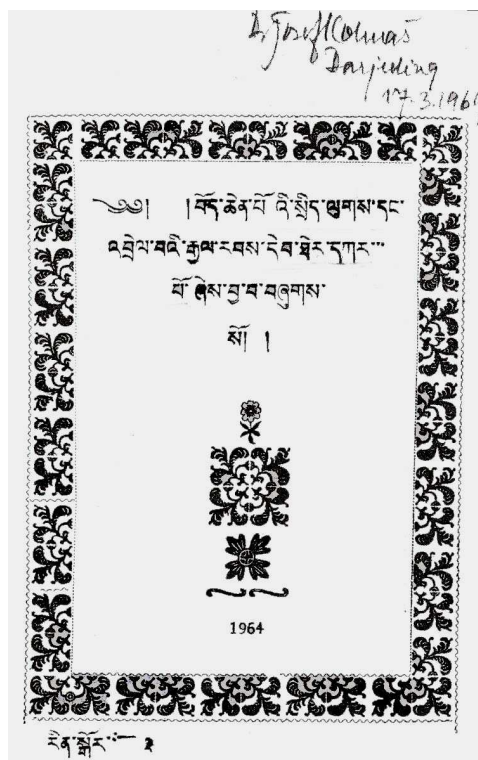 Dr. Josef Kolmaš
Darjeeling
17.3.196
༄༅། །བོད་ཆེན་པོ་འི་སྲིད་ལུགས་དང་
འབྲེལ་བའི་རྒྱལ་རབས་དེབ་ཐེར་དཀར་
པོ་ཞེས་བྱ་བ་བཞུགས་
སོ། །
1964
རིན་སྒོར་